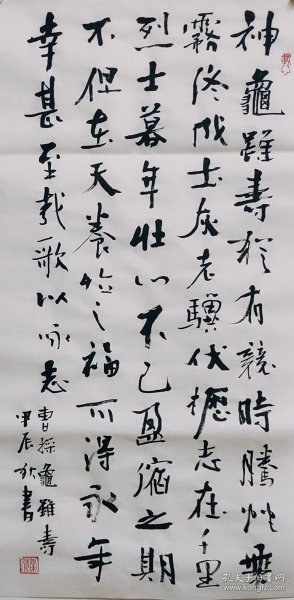 神龜雖壽猶有競時騰蛇乘
霧终成土灰老驥伏櫪志在千里
烈士暮年壯心不已盈縮之期
不但在天養怡之福可得永年
幸甚至哉歌以咏志
曹操龜雖壽
甲辰秋書